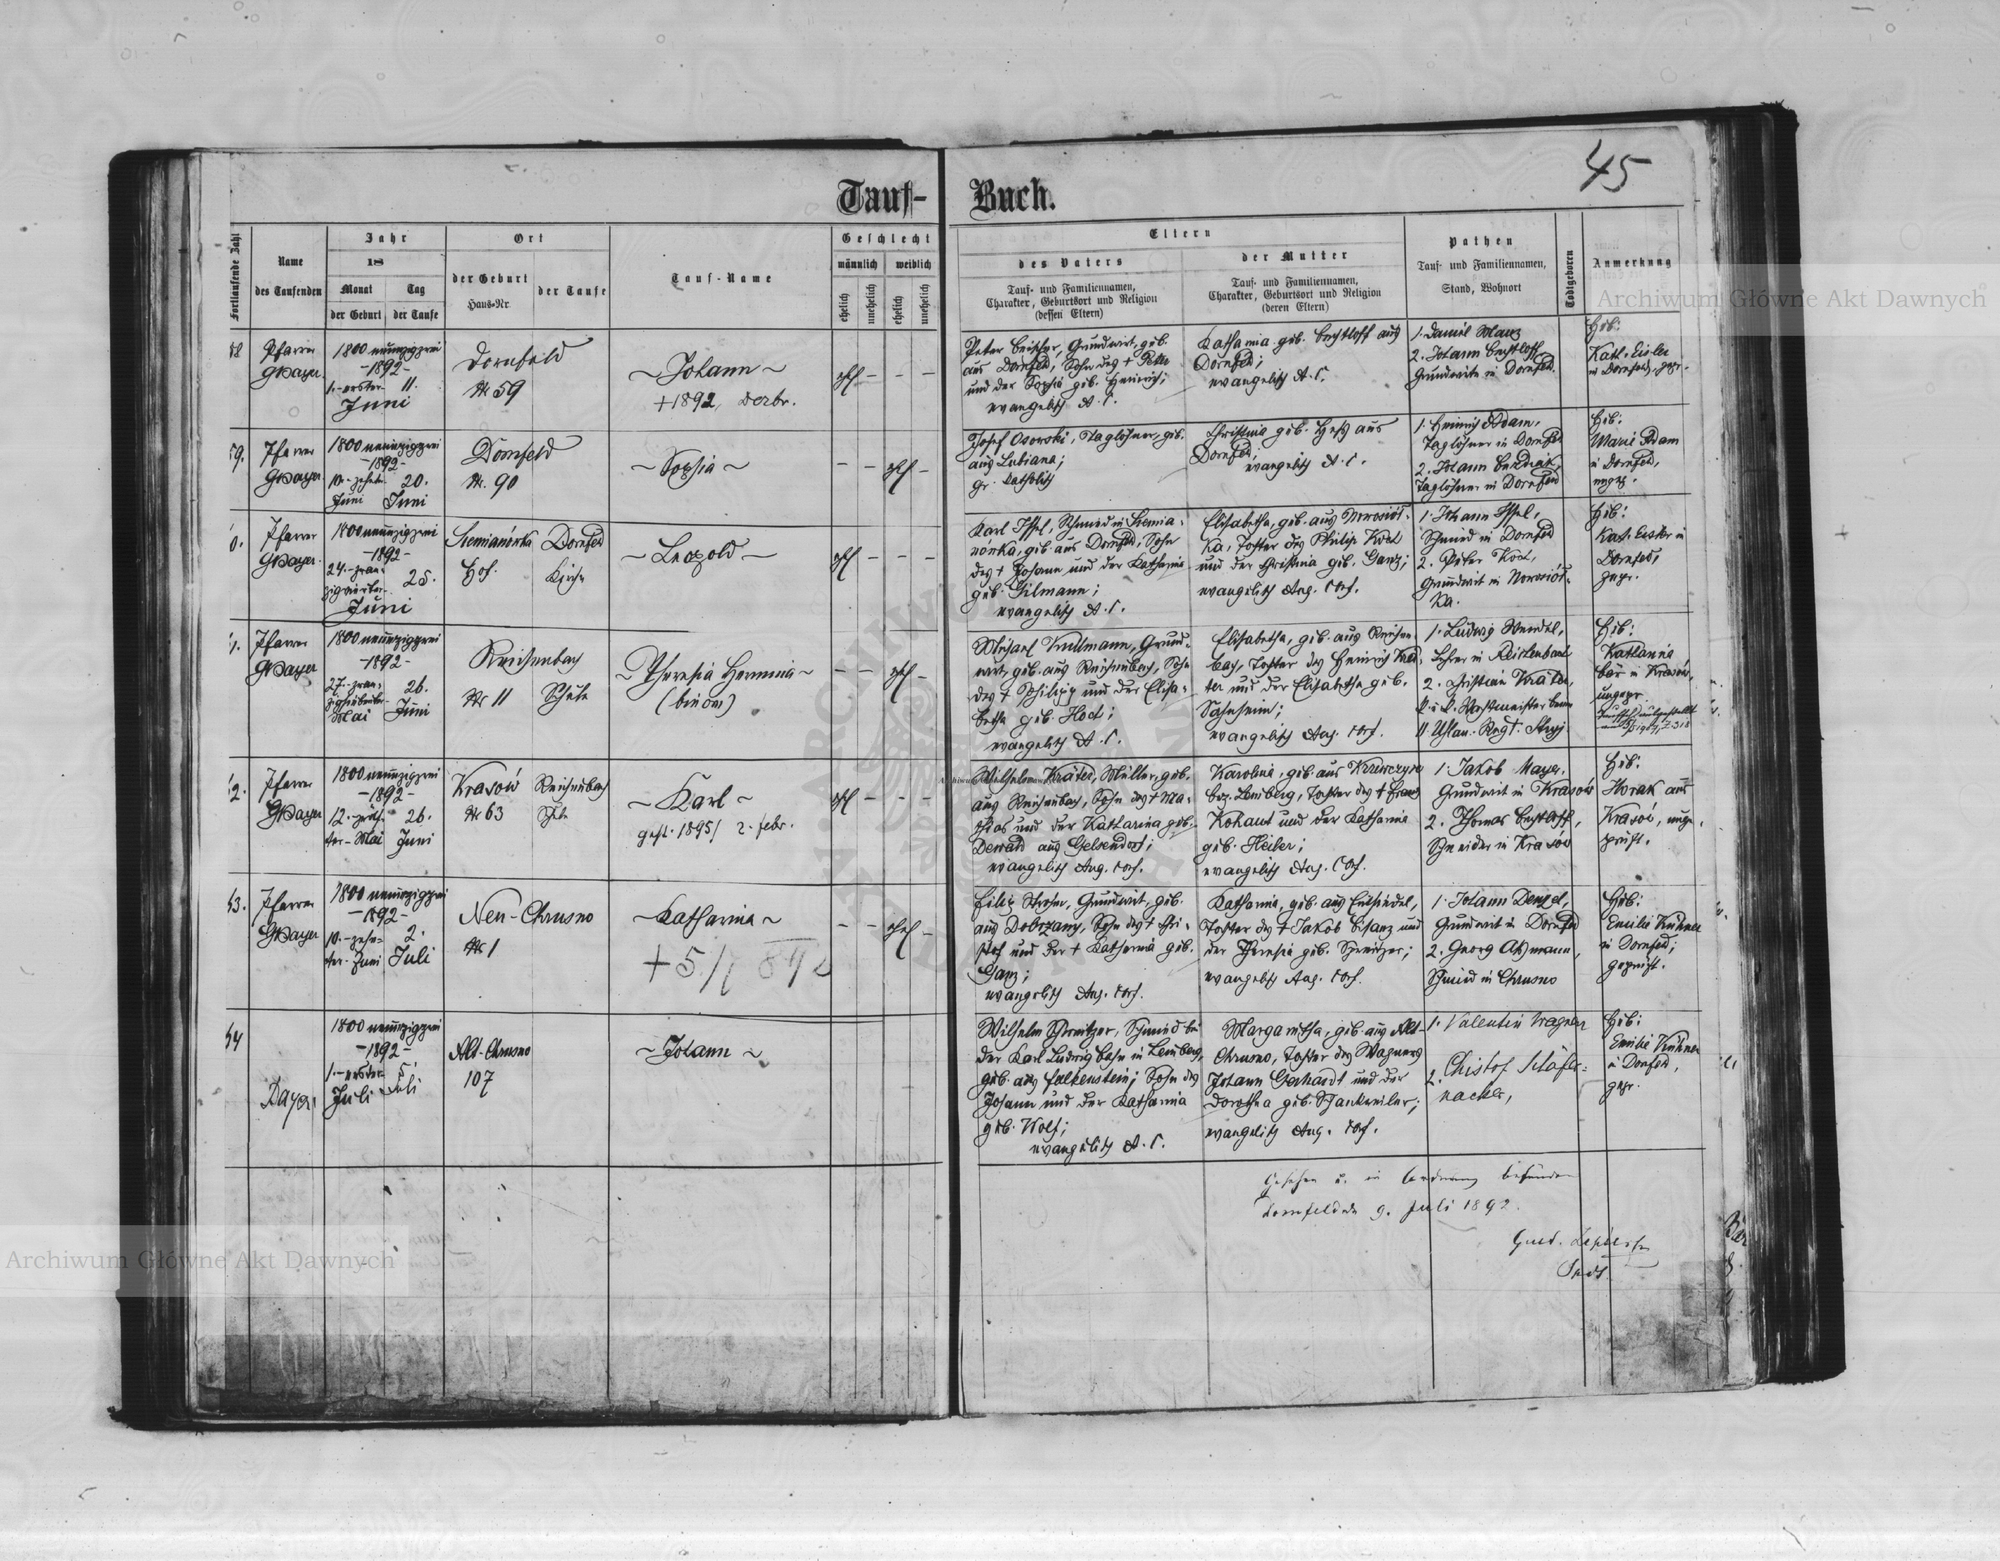 45
Tauf-Buch.
Fortlaufende Zahl
Name
des Taufenden
Jahr
18
Monat
der Geburt
Tag
der Taufe
Ort
der Geburt
Haus-Nr.
der Taufe
Tauf-Name
Geschlecht
männlich
weiblich
ehelich
unehelich
ehelich
unehelich
Eltern
des Vaters
Tauf- und Familiennamen,
Charakter, Geburtsort und Religion
(dessen Eltern)
der Mutter
Tauf- und Familiennamen,
Charakter, Geburtsort und Religion
(deren Eltern)
Pathen
Tauf- und Familiennamen,
Stand, Wohnort
Todtgeboren
Anmerkung
58
Pfarrer
1800 neunzigzwei
-1892-
1.-erster- 11.
Juni
Dornfeld
Nr 59
~Johann~
+1892,
ehel - - -
Grundwirt, geb.
aus Dornfeld, Sohn des + Peter
und der Sophia geb. Heinrich;
evangelisch A. C.
Katharina geb. Bechtloff aus
Dornfeld;
evangelisch A. C.
1. Daniel Manz
2. Johann Bechtloff
Grundwirte in Dornfeld.
Heb:
Kath. Eisler
in Dornfeld, gepr.
59.
Pfarrer
1800 neunzigzwei
-1892-
10.-zehn- 20.
Juni Juni
Dornfeld
Nr. 90
~Sophia~
- - ehel -
Josef Osorski, Taglöhner, geb.
aus Lubiana;
gr. katholisch
Christina geb. Heß aus
Dornfeld;
evangelisch A. C.
1. Heinrich Adam,
Taglöhner in Dornfeld
2. Johann
Taglöhner in Dornfeld
Heb:
Marie Adam
in Dornfeld,
ungepr.
60.
Pfarrer
1800 neunzigzwei
-1892-
24.-zwan-
zigvierter- 25.
Juni
Siemianówka Dornfeld
Hof. Kirche
~Leopold~
ehel - - -
Karl Issel, Schmied in Siemia-
nówka, geb. aus Dornfeld, Sohn
des + Johann und der Katharina
geb. Hilmann;
evangelisch A. C.
Elisabetha, geb. aus Nowosiół-
ka, Tochter des Philip
und der Christina geb. Ganz;
evangelisch Aug. Conf.
1. Johann Issel,
Schmied in Dornfeld
2. Peter
Grundwirt in Nowosiół-
ka.
Heb:
Kath. Eisler in
Dornfeld,
gepr.
61.
Pfarrer
1800 neunzigzwei
-1892-
27.-zwan-
zigsiebenter- 26.
Mai Juni
Reichenbach
Nr 11 Schule
~Theresia Hermina~
(binom)
- - ehel -
Michael Kullmann, Grund-
wirt, geb. aus Reichenbach, Sohn
des + Philipp und der Elisa-
betha geb. Hoch;
evangelisch A. C.
Elisabetha, geb. aus Reichen-
bach, Tochter des Heinrich
und der Elisabetha geb.
evangelisch Aug. Conf.
1. Ludwig Wendel,
Lehrer in Reichenbach
2. Christian Kräter,
k. u. k. Wachtmeister beim
11 Uhlan. Regt. Stryj.
Heb:
Katharina
Bär in Krasów,
ungepr.
62.
Pfarrer
1800 neunzigzwei
-1892-
12.-zwölf- 26.
ter- Mai Juni
Krasów Reichenbach
Nr 63 Schule
~Karl~
gest. 1895/ 2. Febr.
ehel - - -
Wilhelm Kräter, Müller, geb.
aus Reichenbach, Sohn des + Ma-
thias und der Katharina geb.
Dewald aus Gelsendorf;
evangelisch Aug. Conf.
Karolina, geb. aus Krzywczyce
bez. Lemberg, Tochter des + Franz
Kohaut und der Katharina
geb. Heiler;
evangelisch Aug. Conf.
1. Jakob Mayer,
Grundwirt in Krasów
2. Thomas Bechtloff,
Schneider in Krasów
Heb:
Horak aus
Krasów, unge-
prüft.
63.
Pfarrer
1800 neunzigzwei
-1892-
10.-zehn- 2.
ter- Juni Juli
Neu-Chrusno
Nr 1
~Katharina~
+5/7 892
- - ehel -
Filip Strohm, Grundwirt, geb.
aus Dobrzany, Sohn des + Chri-
stof und der + Katharina geb.
Ganz;
evangelisch Aug. Conf.
Katharina, geb. aus Einsiedel,
Tochter des + Jakob Bisanz und
der Theresia geb. Schweitzer;
evangelisch Aug. Conf.
1. Johann Denzel,
Grundwirt in Dornfeld
2. Georg Aßmann,
Schmied in Chrusno
Heb:
Emilie Kühner
in Dornfeld;
geprüft.
64
Bayer
1800 neunzigzwei
-1892-
1.-erster- 5.
Juli Juli
Alt-Chrusno
107
~Johann~
Wilhelm Schweitzer, Schmied bei
der Karl Ludwig Bahn in Lemberg,
geb. aus Falkenstein; Sohn des
Johann und der Katharina
geb. Wolf;
evangelisch A. C.
Margaretha, geb. aus Alt-
Chrusno, Tochter des Wagners
Johann Gerhardt und der
Dorothea geb. Schankweiler;
evangelisch Aug. Conf.
1. Valentin Wagner
2. Christof Schäfer-
nacker,
Heb:
Emilie Kühner
in Dornfeld,
gepr.
Gesehen u. in Ordnung befunden
Dornfeld den 9. Juli 1892.
Archiwum Główne Akt Dawnych
Archiwum Główne Akt Dawnych